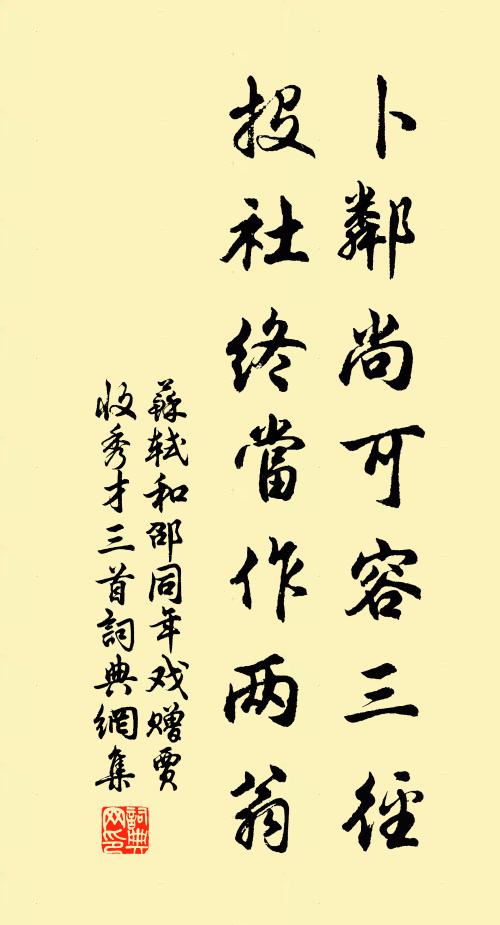 卜鄰尚可容三徑
投社終當作两翁
蘇軾和邵同年戏赠賈
收秀才三首詞典網集
詞典
网印